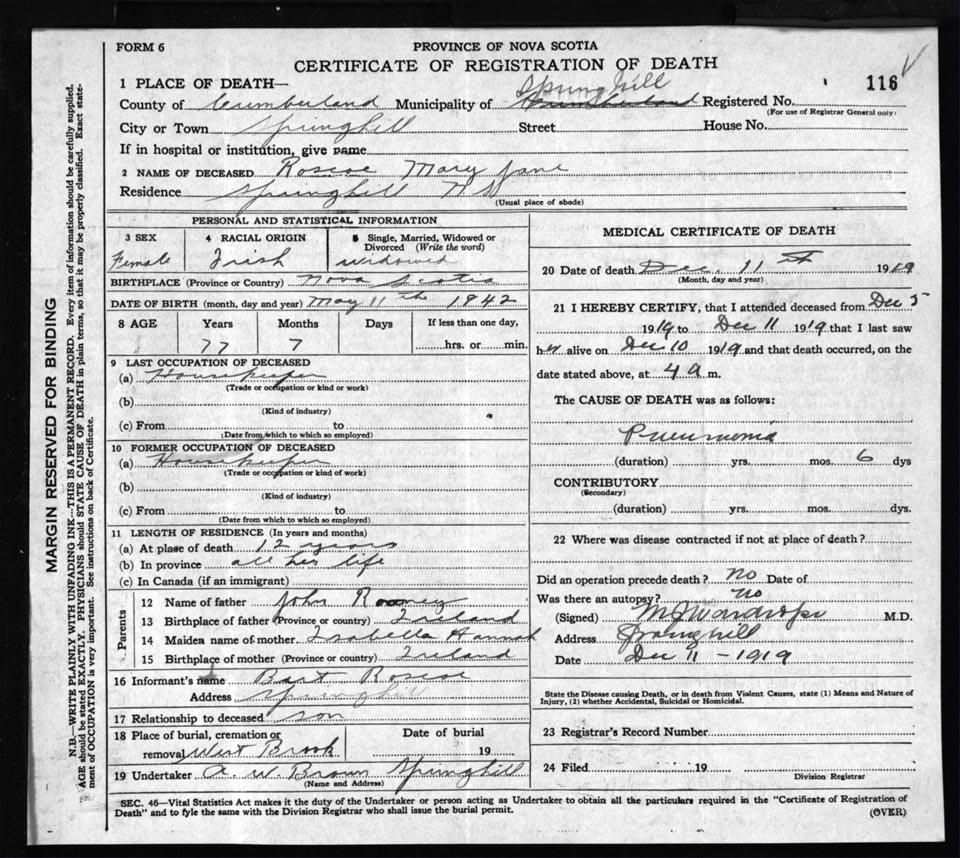 FORM 6
PROVINCE OF NOVA SCOTIA
CERTIFICATE OF REGISTRATION OF DEATH
116
1 PLACE OF DEATH—
Springhill
County of Cumberland Municipality of Cumberland Registered No.
(For use of Registrar General only)
City or Town Springhill Street House No.
If in hospital or institution, give name
2 NAME OF DECEASED Roscoe Mary Jane
Residence Springhill N.S.
(Usual place of abode)
PERSONAL AND STATISTICAL INFORMATION
3 SEX Female
4 RACIAL ORIGIN Irish
5 Single, Married, Widowed or Divorced (Write the word) Widowed
BIRTHPLACE (Province or Country) Nova Scotia
DATE OF BIRTH (month, day and year) May 11th 1842
8 AGE Years Months Days If less than one day,
77 7 hrs. or min.
9 LAST OCCUPATION OF DECEASED
(a) Housekeeper
(Trade or occupation or kind of work)
(b)
(Kind of industry)
(c) From to
(Date from which to which so employed)
10 FORMER OCCUPATION OF DECEASED
(a) Housekeeper
(Trade or occupation or kind of work)
(b)
(Kind of industry)
(c) From to
(Date from which to which so employed)
11 LENGTH OF RESIDENCE (In years and months)
(a) At place of death 12 years
(b) In province all her life
(c) In Canada (if an immigrant)
Parents
12 Name of father John Rooney
13 Birthplace of father (Province or country) Ireland
14 Maiden name of mother Isabella Hannah
15 Birthplace of mother (Province or country) Ireland
16 Informant's name Bart Roscoe
Address Springhill
17 Relationship to deceased son
18 Place of burial, cremation or Date of burial
removal West Brook 19
19 Undertaker A. W. Brown Springhill
(Name and Address)
MEDICAL CERTIFICATE OF DEATH
20 Date of death Dec. 11th 1919
(Month, day and year)
21 I HEREBY CERTIFY, that I attended deceased from Dec 5
1919 to Dec 11 1919 that I last saw
her alive on Dec 10 1919 and that death occurred, on the
date stated above, at 4 a m.
The CAUSE OF DEATH was as follows:
Pneumonia
(duration) yrs. mos. 6 dys
CONTRIBUTORY
(Secondary)
(duration) yrs. mos. dys.
22 Where was disease contracted if not at place of death?
Did an operation precede death? no Date of
Was there an autopsy? no
(Signed) M.D.
Address Springhill
Date Dec 11 - 1919
State the Disease causing Death, or in death from Violent Causes, state (1) Means and Nature of
Injury, (2) whether Accidental, Suicidal or Homicidal.
23 Registrar's Record Number
24 Filed 19
Division Registrar
SEC. 46—Vital Statistics Act makes it the duty of the Undertaker or person acting as Undertaker to obtain all the particulars required in the "Certificate of Registration of
Death" and to fyle the same with the Division Registrar who shall issue the burial permit.
(OVER)
MARGIN RESERVED FOR BINDING
N.B.—WRITE PLAINLY WITH UNFADING INK—THIS IS A PERMANENT RECORD. Every item of information should be carefully supplied.
AGE should be stated EXACTLY. PHYSICIANS should STATE CAUSE OF DEATH in plain terms, so that it may be properly classified. Exact state-
ment of OCCUPATION is very important. See instructions on back of Certificate.